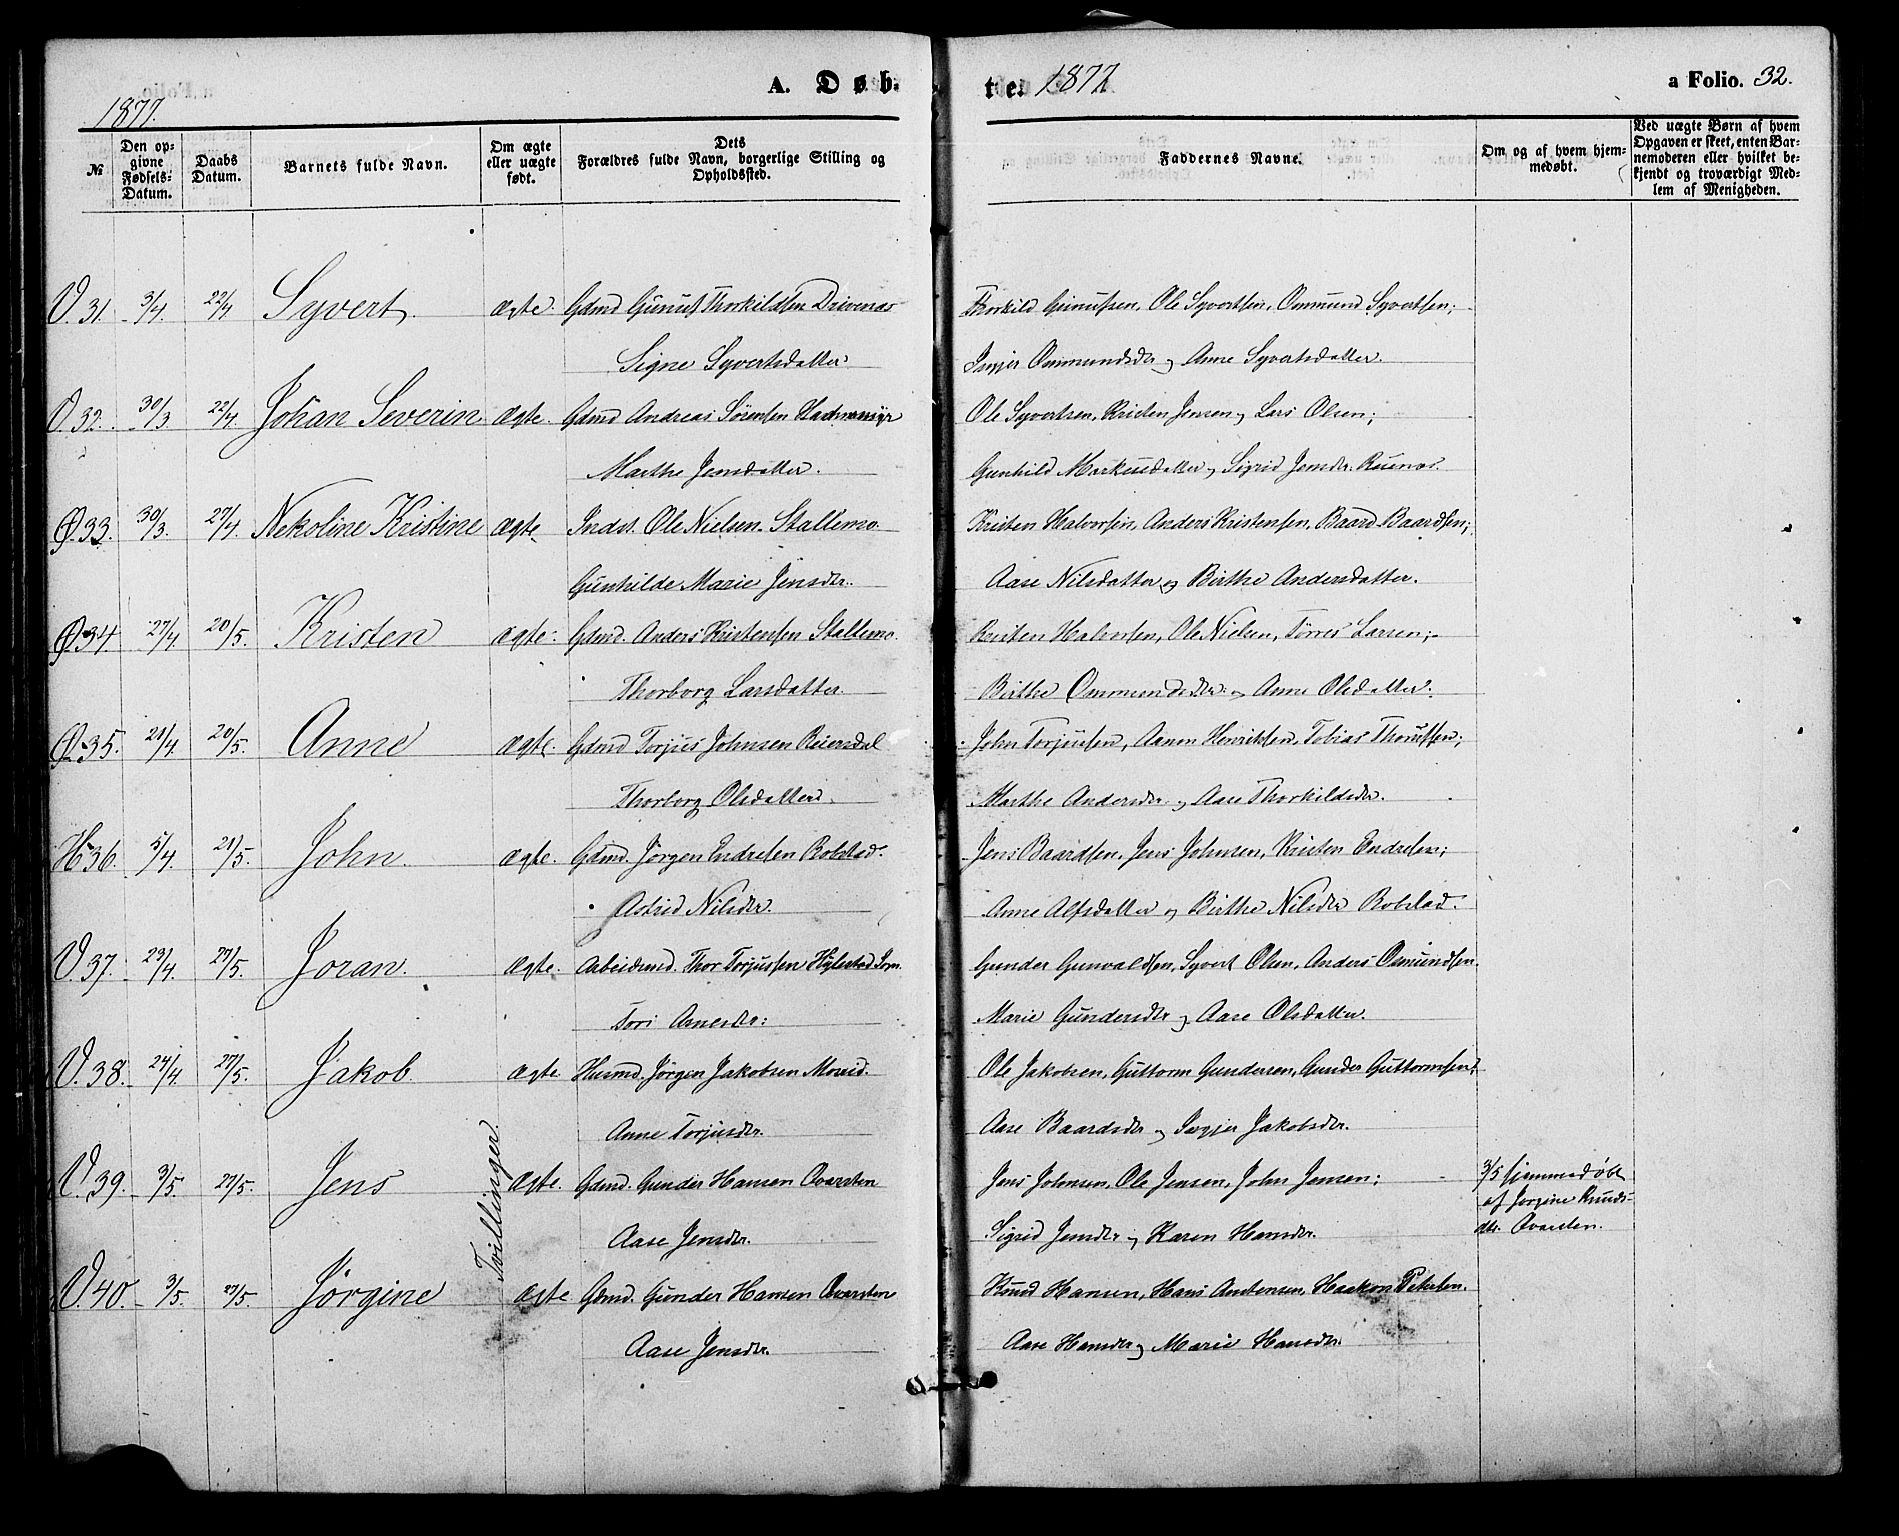 A. Døb-
te. 1877
a Folio. 32.
1877.
№
Den op-
givne
Fødsels-
Datum.
Daabs
Datum.
Barnets fulde Navn.
Om ægte
eller uægte
født.
Dets
Forældres fulde Navn, borgerlige Stilling og
Opholdssted.
Faddernes Navne.
Om og af hvem hjem-
medøbt.
Ved uægte Børn af hvem
Opgaven er skeet, enten Bar-
nemoderen eller hvilket be-
kjendt og troværdigt Med-
lem af Menigheden.
V. 31. 3/4. 22/4 Syvert. ægte. Gdmd Gunuf Thorkildsen Drivenæs Thorkild Gunufsen, Ole Syvertsen, Ommund Syvertsen;
Signe Syvertsdatter. Ingjer Ommundsdr og Anne Syvertsdatter.
V. 32. 30/3 22/4. Johan Severin ægte. Gdmd Andreas Sørensen Ole Syvertsen, Kristen Jensen og Lars Olsen;
Marthe Jensdatter. Gunhild Markusdatter og Sigrid Jensdr.
Ø. 33. 30/3. 27/4. Nekoline Kristine ægte. Inds. Ole Nielsen Stallemo Kristen Halvorsen, Anders Kristensen, Baard Baardsen;
Gunhilde Marie Jensdr. Aase Nilsdatter og Birthe Andersdatter.
Ø. 34. 27/4. 20/5. Kristen ægte. Gdmd. Anders Kristensen Stallemo. Kristen Halvorsen, Ole Nielsen, Tørres Larsen;
Thorborg Larsdatter. Birthe Ommundsdtr. og Anne Olsdatter.
Ø. 35. 21/4. 20/5. Anne ægte. Gdmd Torjus Johnsen Reiersdal John Torjussen, Aanon Henriksen, Tobias
Thorborg Olsdatter. Marthe Andersdr. og Aase Thorkildsdr.
H. 36. 5/4. 21/5. John. ægte. Gdmd. Jørgen Endresen Robstad. Jens Baardsen, Jens Johnsen, Kristen Endresen;
Astrid Nilsdr. Anne Alfsdatter og Birthe Nilsdr Robstad.
V. 37. 23/4. 27/5. Joran. ægte. Arbeidsmd. Thor Torjussen Hylestad Gunder Gunvaldsen, Syvert Olsen, Anders Osmundsen.
Tori Arnesdr: Marie Gundersdtr og Aase Olsdatter.
V. 38. 24/4. 27/5. Jakob. ægte. Husmd. Jørgen Jakobsen Ole Jakobsen, Guttorm Gundersen, Gunder Guttormsen;
Anne Torjusdr. Aase Baardsdr og Ingjer Jakobsdr.
Tvillinger.
V. 39. 3/5. 27/5. Jens ægte. Gdmd. Gunder Hansen Qvarsten Jens Johnsen, Ole Jensen, John Jensen; 3/5 hjemmedøbt
af Jørgine Knuds-
dtr. Qvarsten.
Aase Jensdr. Sigrid Jensdr og Karen Hansdr.
V. 40. 3/5. 27/5. Jørgine ægte Gdmd. Gunder Hansen Qvarsten Knud Hansen, Hans Andersen, Haakon Petersen.
Aase Jensdr. Aase Hansdr og Marie Hansdr.